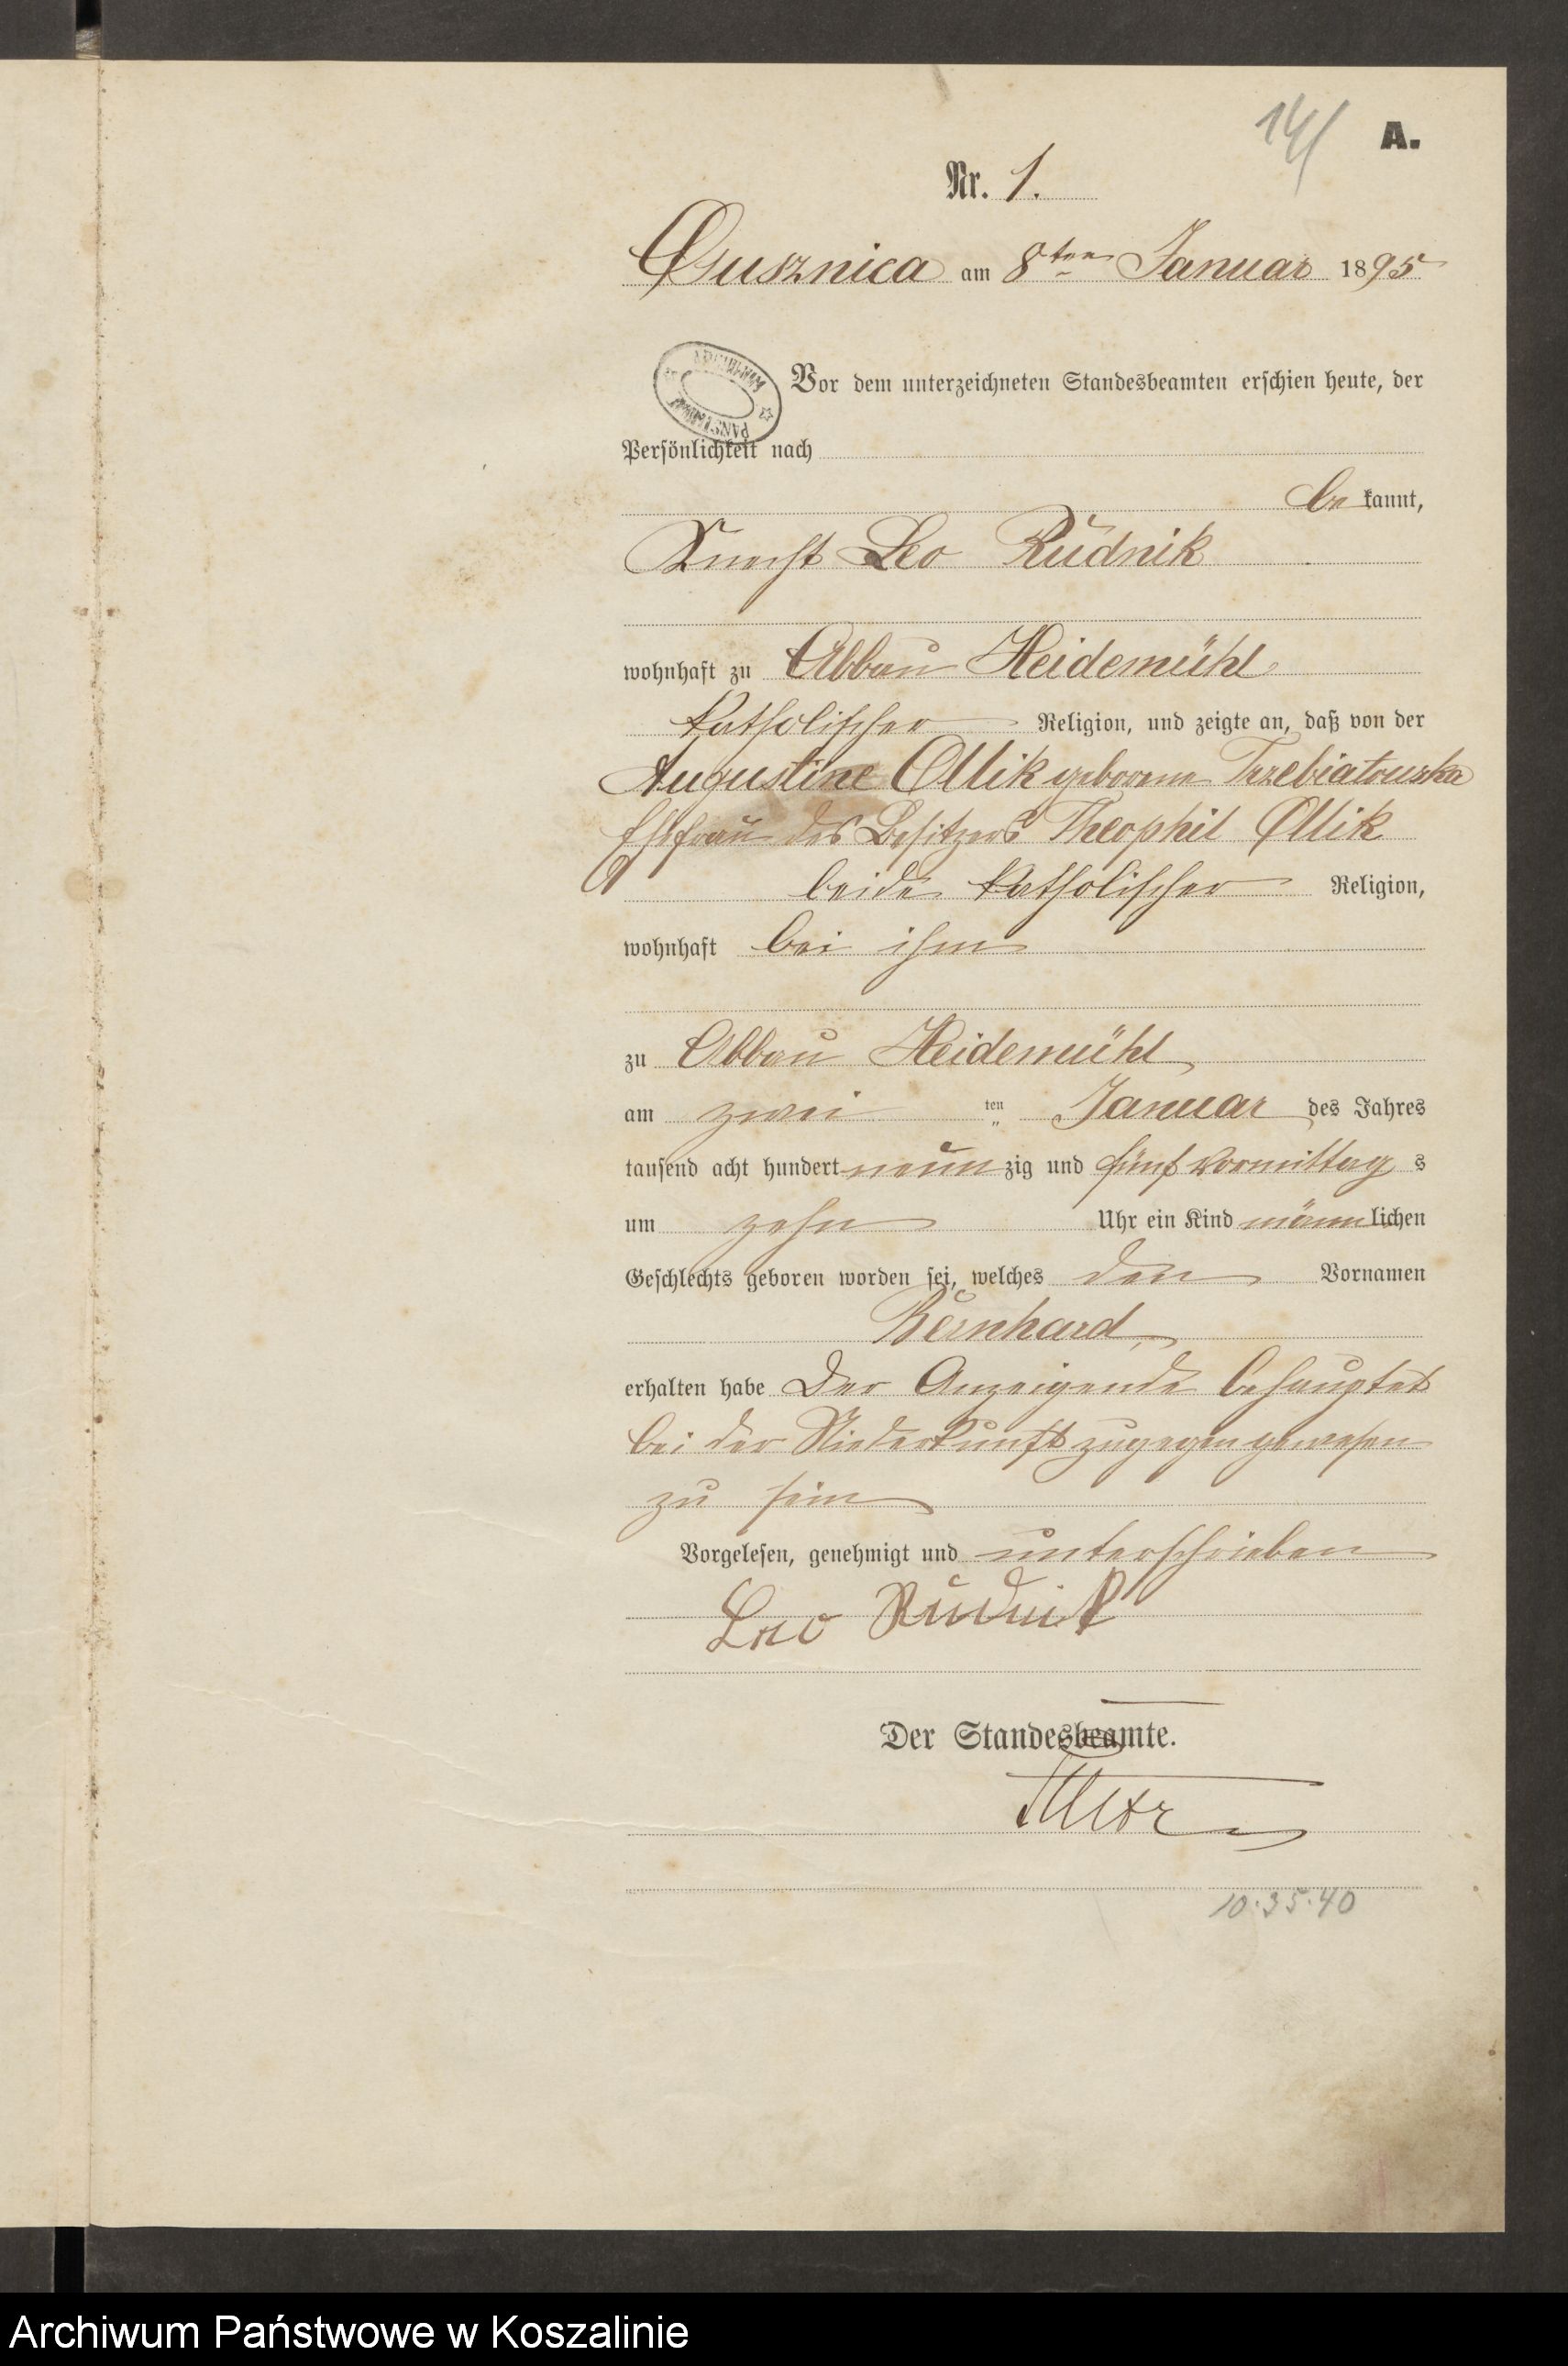 141
A.
Nr. 1.
Ossusznica am 8ten Januar 1895
ARCHIWUM PAŃSTWOWE
Vor dem unterzeichneten Standesbeamten erschien heute, der
Persönlichkeit nach
be kannt,
Knecht Leo Rudnik
wohnhaft zu Abbau Heidemühl
katholischer Religion, und zeigte an, daß von der
Augustine Ollik geborene Trzebiatowska
Ehefrau des Besitzers Theophil Ollik
beide katholischer Religion,
wohnhaft bei ihm
zu Abbau Heidemühl
am zwei ten Januar des Jahres
tausend acht hundert neun zig und fünf Vormittag s
um zehn Uhr ein Kind männ lichen
Geschlechts geboren worden sei, welches den Vornamen
Bernhard
erhalten habe Der Anzeigende behauptet
bei der Niederkunft zugegen gewesen
zu sein
Vorgelesen, genehmigt und unterschrieben
Leo Rudnik
Der Standesbeamte.
10.35.40
Archiwum Państwowe w Koszalinie